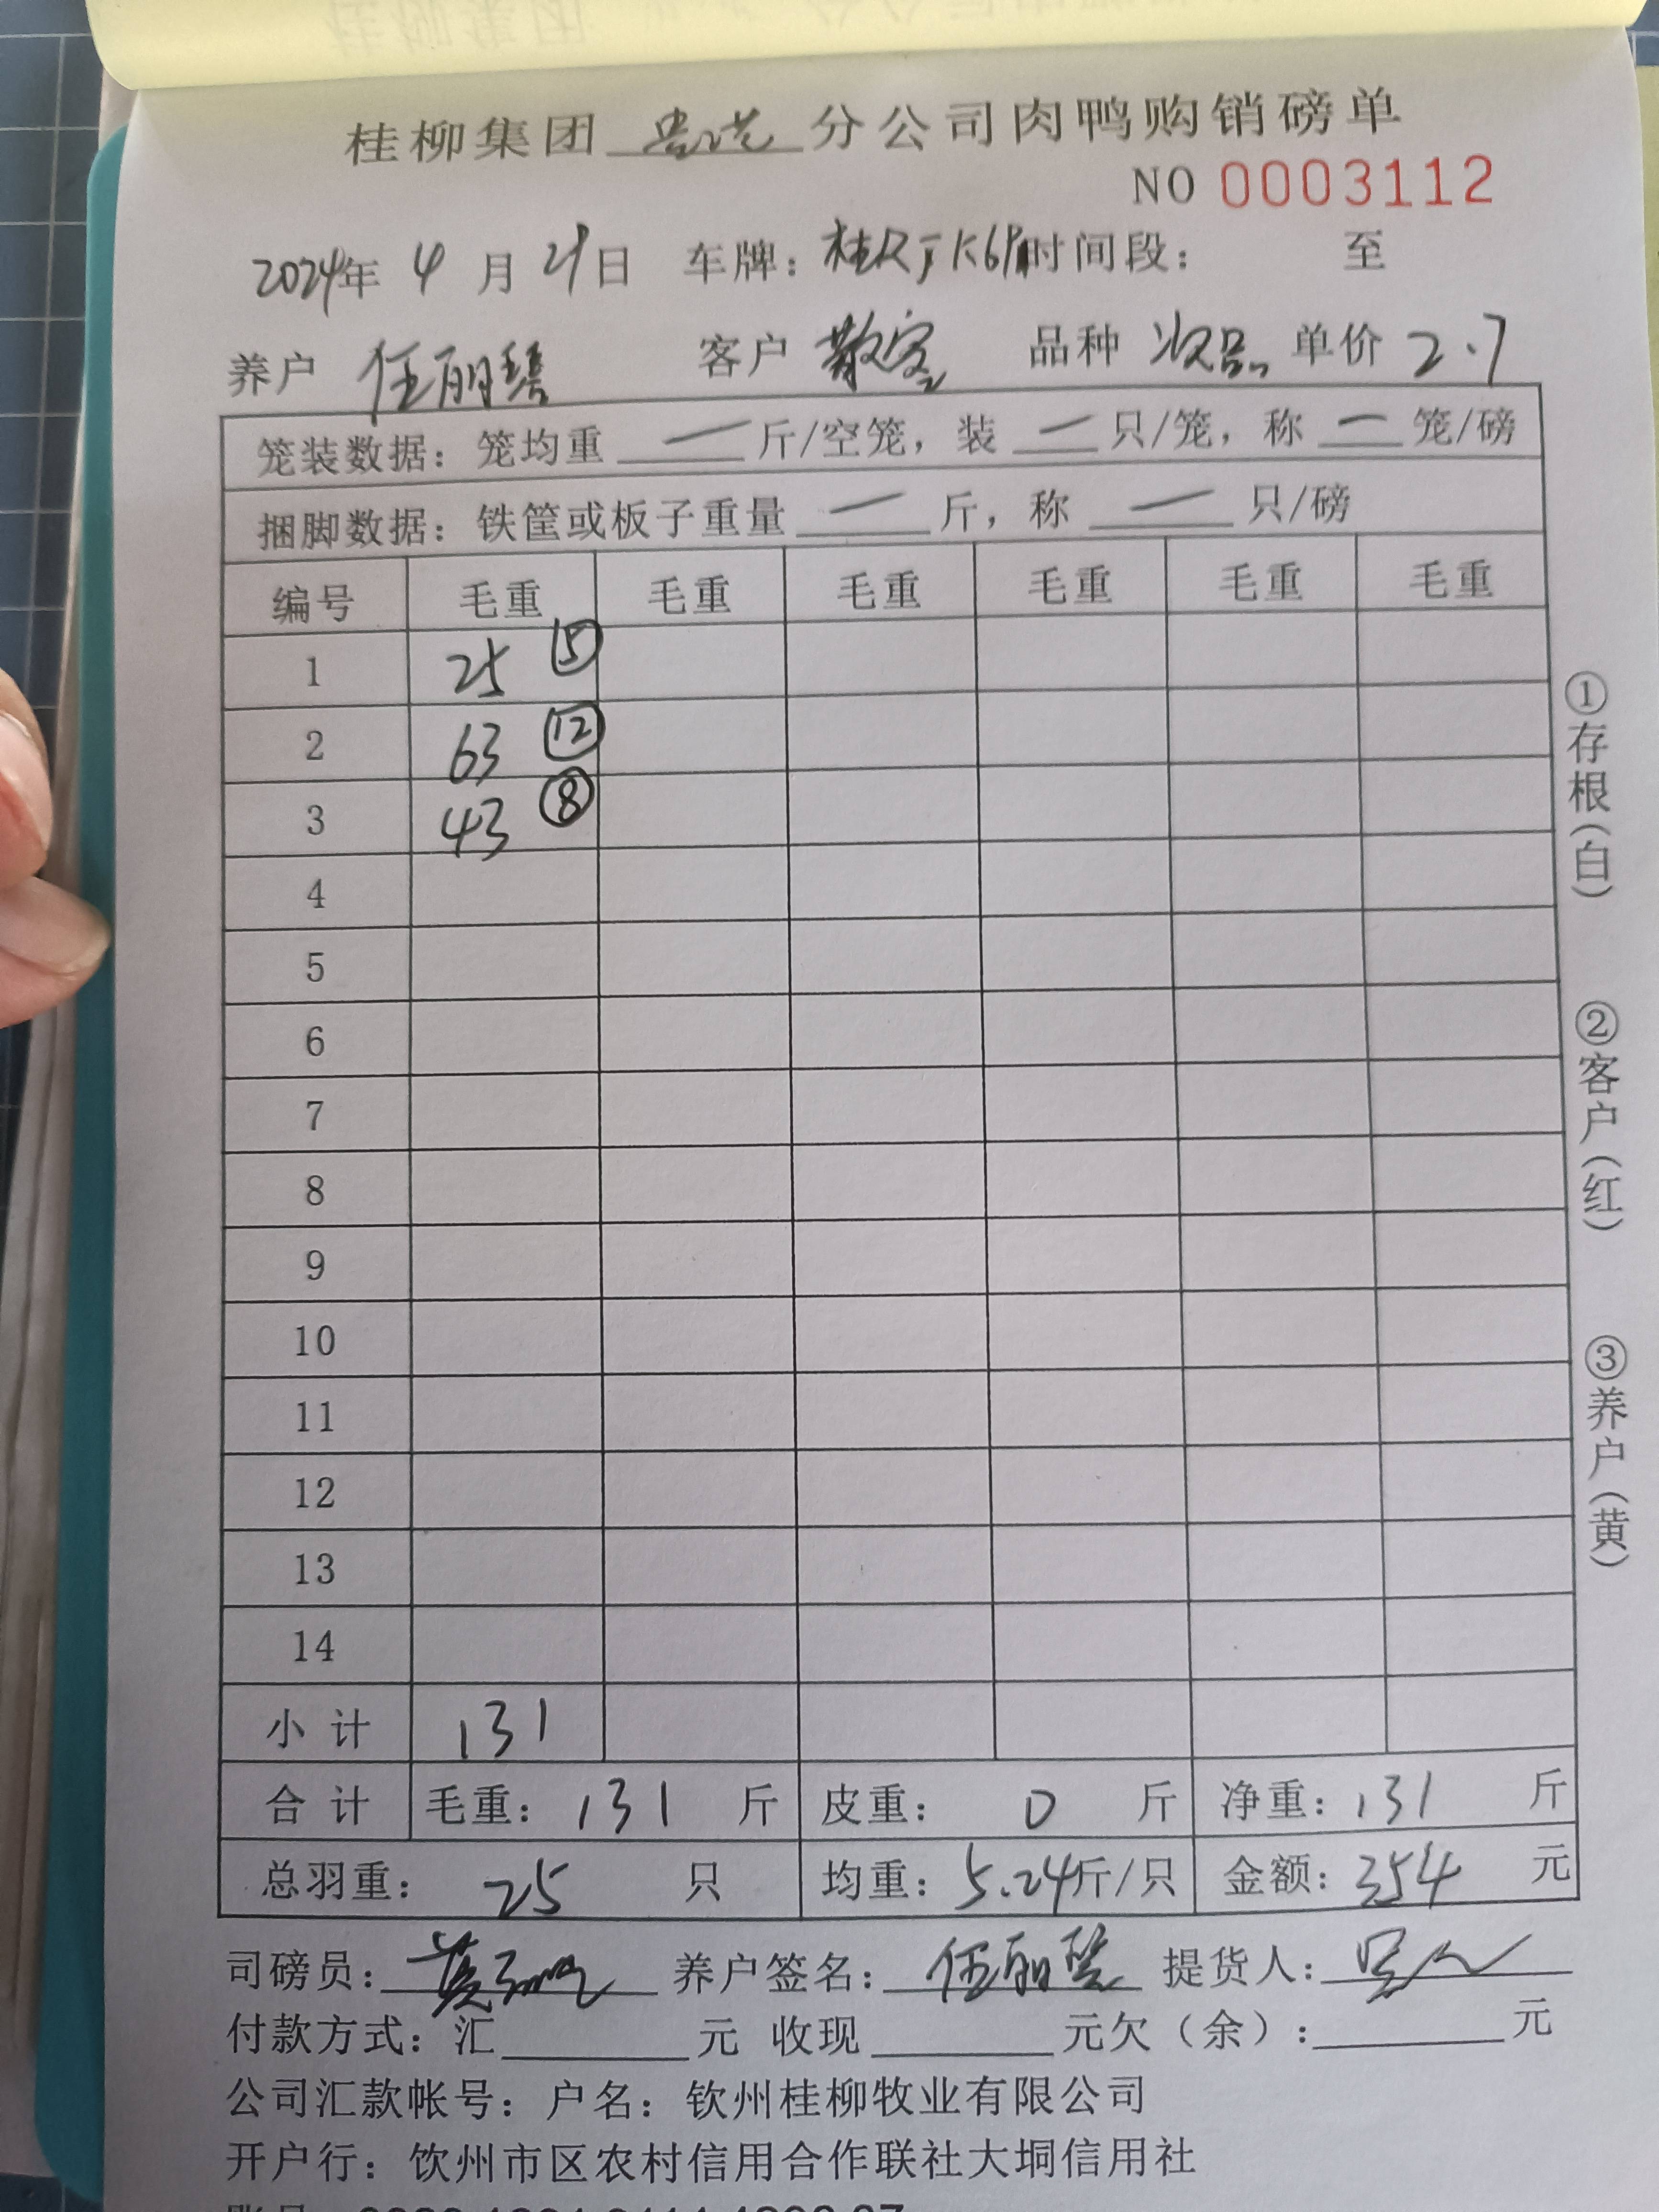 桂柳集团 贵港 分公司肉鸭购销磅单
NO 0003112
2024年 4 月 21日 车牌: 桂R 时间段: 至
养户 任丽 客户 散客 品种 次品 单价 2.7
笼装数据: 笼均重 一 斤/空笼, 装 一 只/笼, 称 一 笼/磅
捆脚数据: 铁筐或板子重量 一 斤, 称 一 只/磅
编号 毛重 毛重 毛重 毛重 毛重 毛重
1 25 ⑤
2 63 ⑫
3 43 ⑧
4
5
6
7
8
9
10
11
12
13
14
小计 131
合计 毛重: 131 斤 皮重: 0 斤 净重: 131 斤
总羽重: 25 只 均重: 5.24斤/只 金额: 354 元
司磅员: 黄 养户签名: 任丽 提货人:
付款方式: 汇 元 收现 元欠(余): 元
公司汇款帐号: 户名: 钦州桂柳牧业有限公司
开户行: 饮州市区农村信用合作联社大垌信用社
①存根(白)
②客户(红)
③养户(黄)